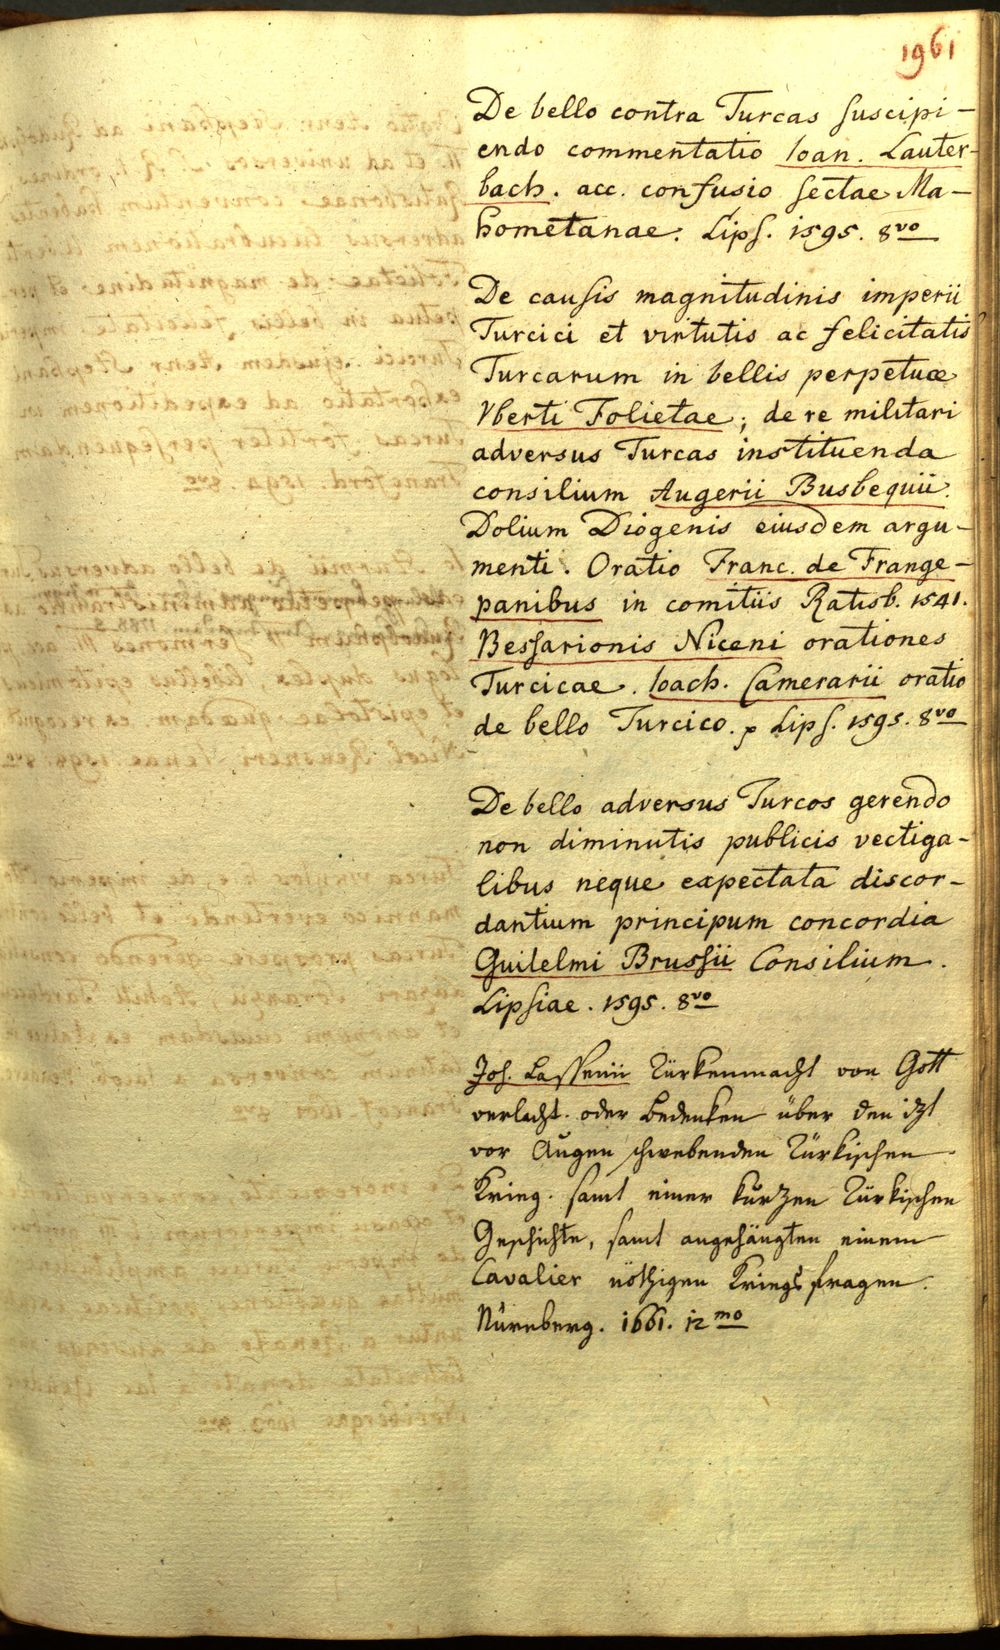 1961
De bello contra Turcas suscipi-
endo commentatio Ioan. Lauter-
bach. acc. confusio sectae Ma-
hometanae. Lips. 1595. 8vo
De causis magnitudinis imperii
Turcici et virtutis ac felicitatis
Turcarum in bellis perpetuae
Vberti Folietae; de re militari
adversus Turcas instituenda
consilium Augerii Busbequii.
Dolium Diogenis eiusdem argu-
menti. Oratio Franc. de Frange-
panibus in comitiis Ratisb. 1541.
Bessarionis Niceni orationes
Turcicae. Ioach. Camerarii oratio
de bello Turcico. Lips. 1595. 8vo
De bello adversus Turcos gerendo
non diminutis publicis vectiga-
libus neque expectata discor-
dantium principum concordia
Guilelmi Brussii Consilium.
Lipsiae. 1595. 8vo
Joh. Lassenii Türkenmacht von Gott
verlacht. oder Bedenken über den izt
vor Augen schwebenden Türkischen
Krieg. samt einer kurzen Türkischen
Geschichte, samt angehängten einem
Cavalier nöthigen Kriegsfragen.
Nürnberg. 1661. 12mo